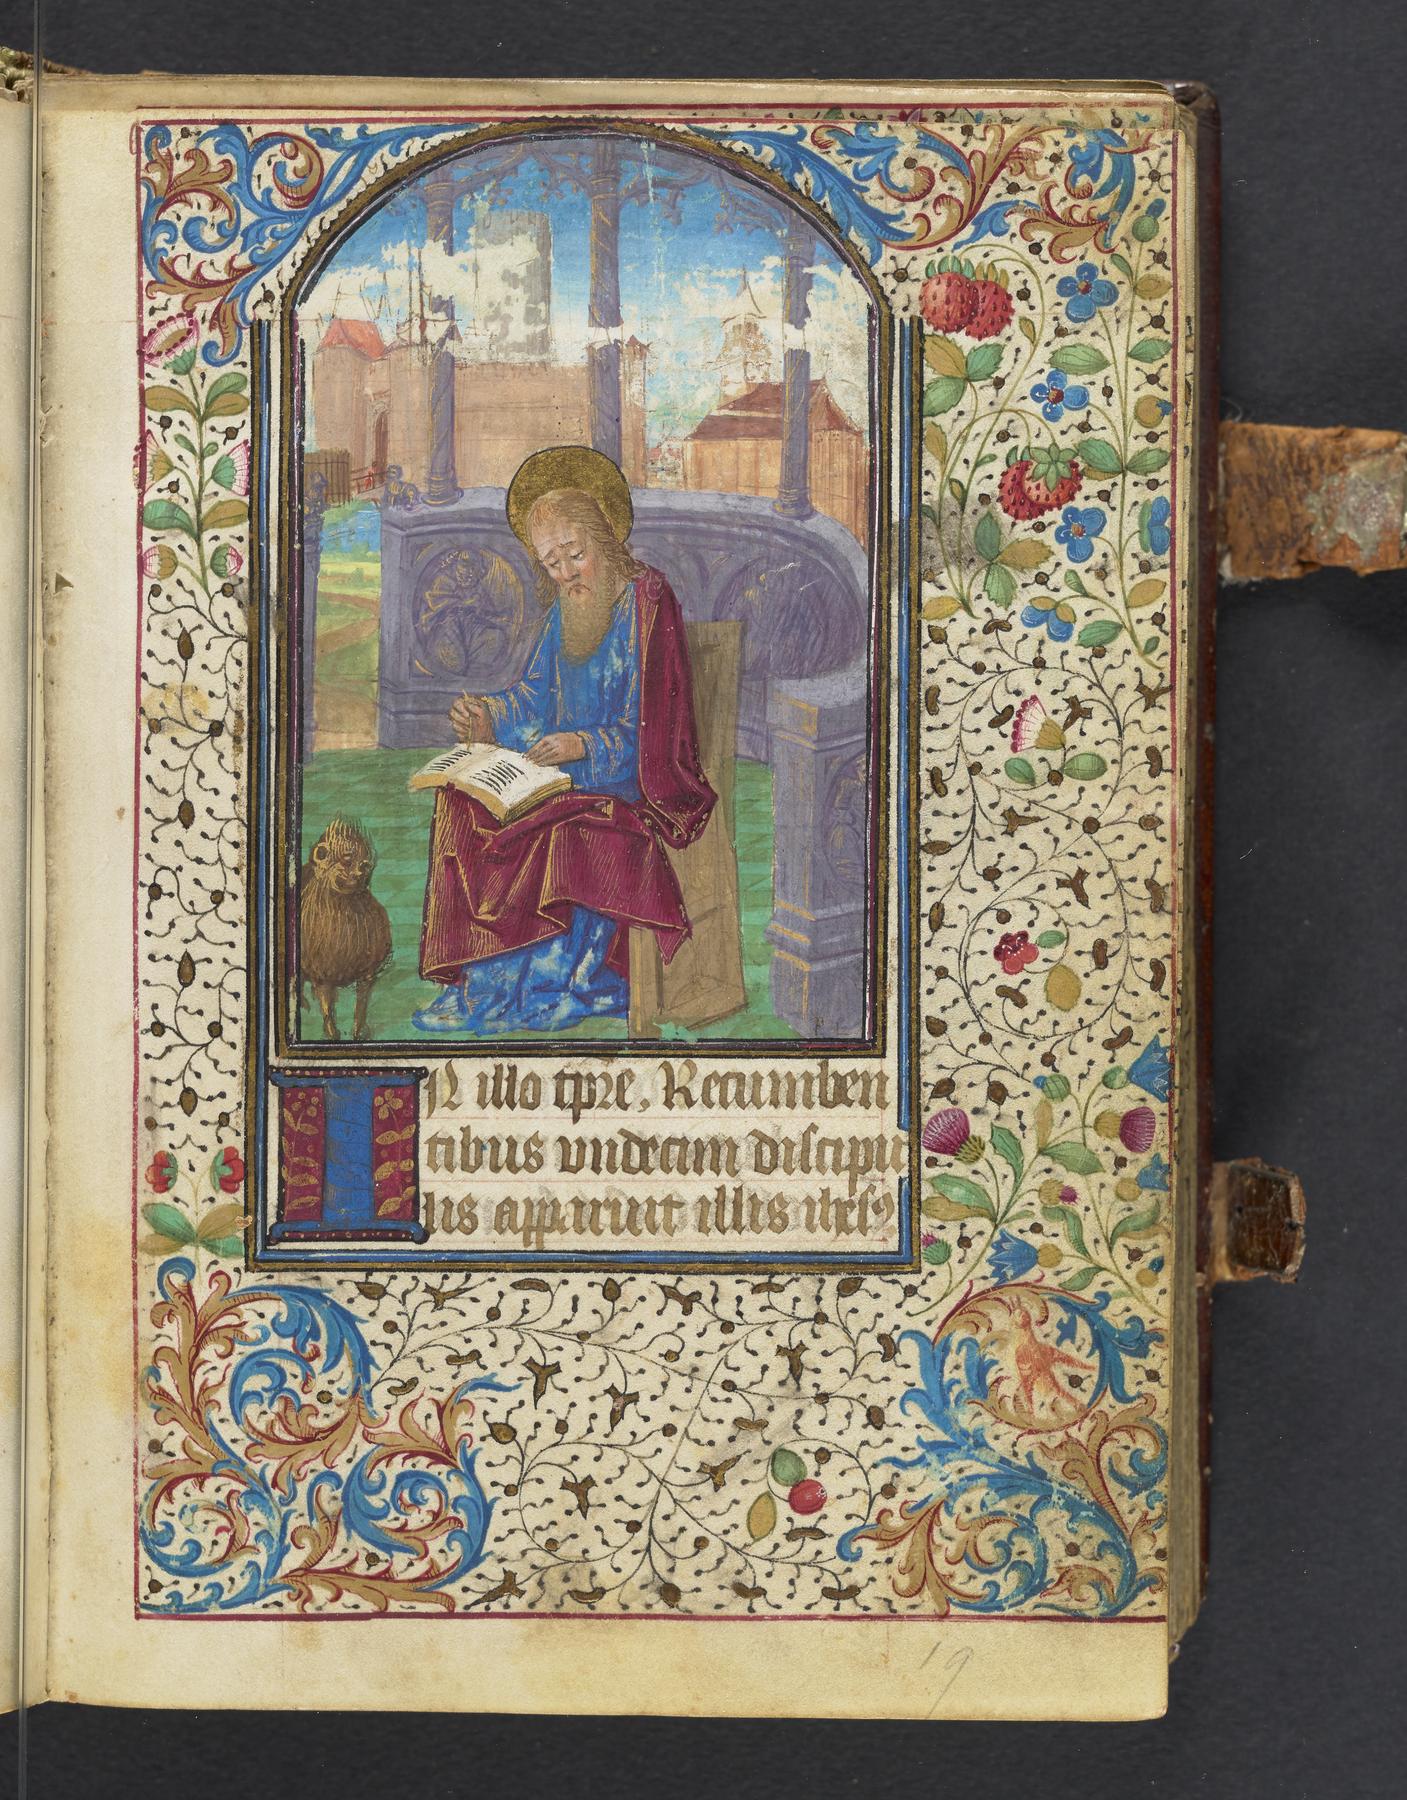 IN illo tpre, Recumben
tibus vndecim discipu
lis apparuit illis ihesꝯ
19